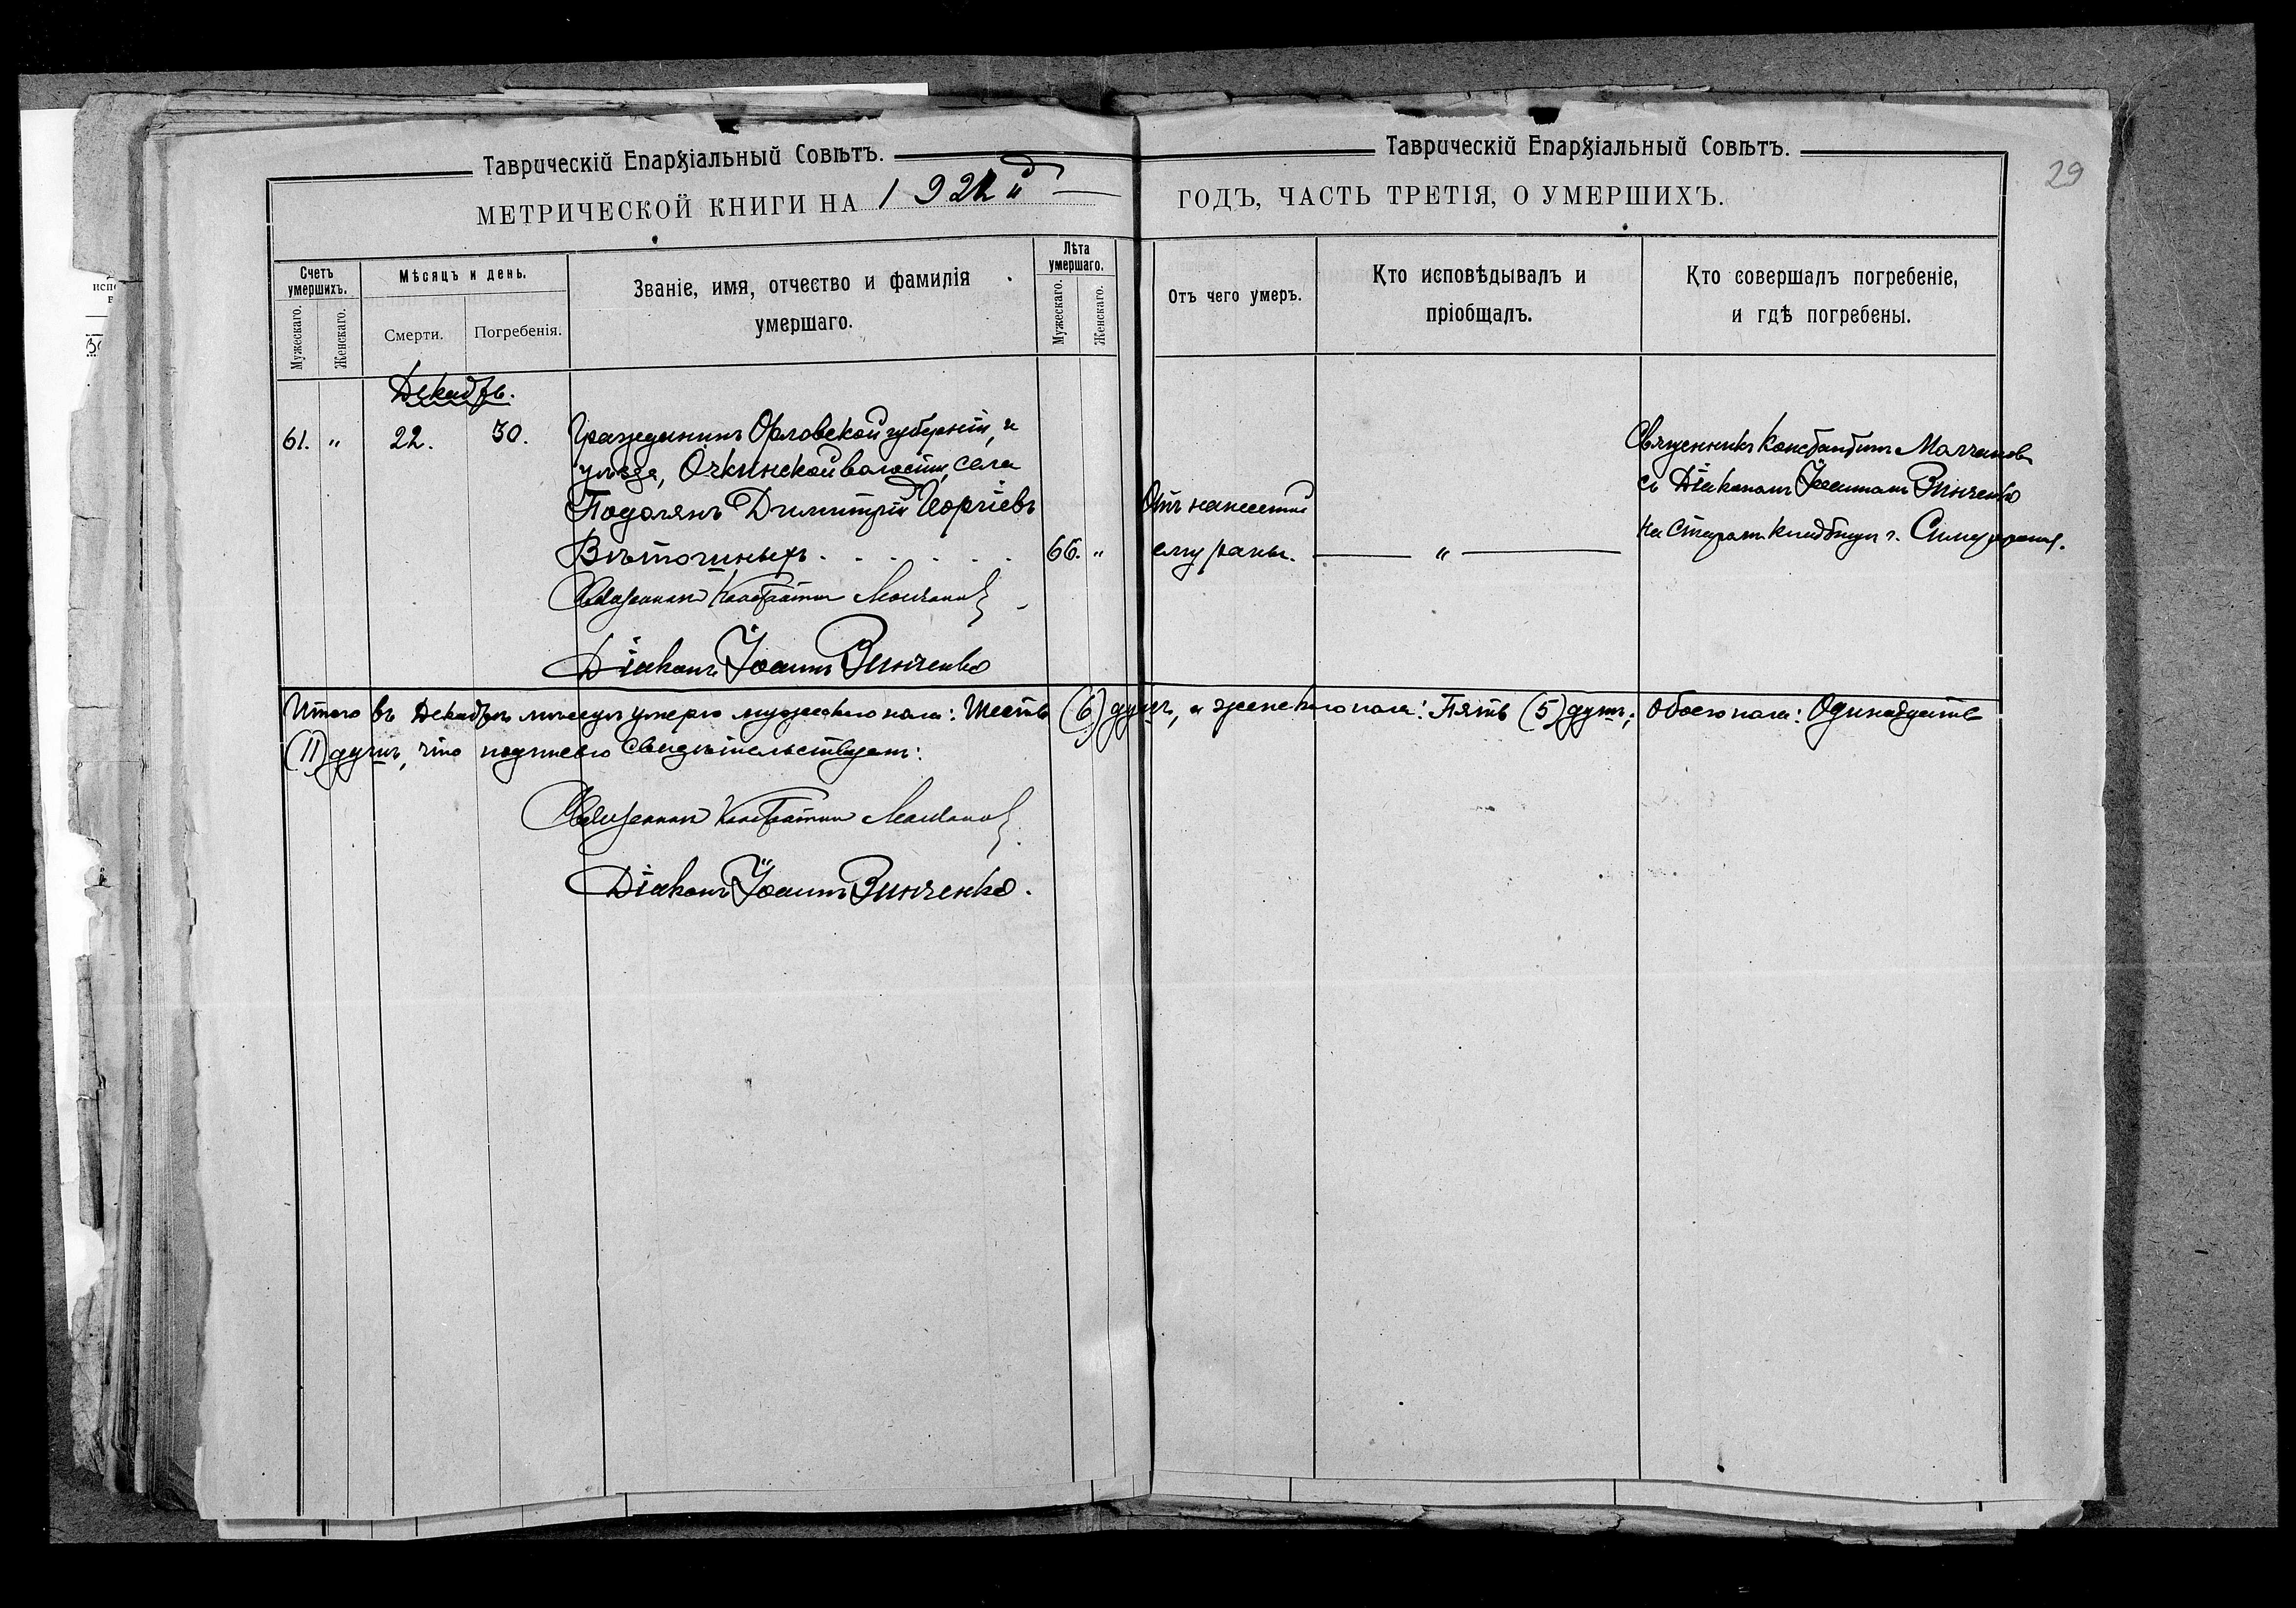 Таврическій Епархіальный Совѣтъ.
МЕТРИЧЕСКОЙ КНИГИ НА 192 й
Счетъ умершихъ.
Мужескаго.
Женскаго.
Мѣсяцъ и день.
Смерти.
Погребенія.
Званіе, имя, отчество и фамилія
умершаго.
Лѣта умершаго.
Мужескаго.
Женскаго.
Декабрь.
61. " 22. 30. Гражданинъ Орловской губерніи, и
уѣзда, Очкинской волости, села
Подолянъ Димитрій Георгіевъ
Вѣточиныхъ . . . . . . 66. "
Священникъ Константинъ Молчановъ
Діаконъ Іоаннъ Винченко
Таврическій Епархіальный Совѣтъ.
29
ГОДЪ, ЧАСТЬ ТРЕТІЯ, О УМЕРШИХЪ.
Отъ чего умеръ.
Кто исповѣдывалъ и
пріобщалъ.
Кто совершалъ погребеніе,
и гдѣ погребены.
Отъ нанесенной
ему раны.
"
Священникъ Константинъ Молчановъ
съ Діакономъ Іоанномъ Винченко
на Старомъ кладбищѣ г. Симферополя.
Итого въ Декабрѣ мѣсяцѣ умерло мужескаго пола: Шесть (6) душъ, а женскаго пола: Пять (5) душъ; Обоего пола: Одинадцать
(11) душъ, что подписью свидѣтельствуемъ:
Священникъ Константинъ Молчановъ
Діаконъ Іоаннъ Винченко.